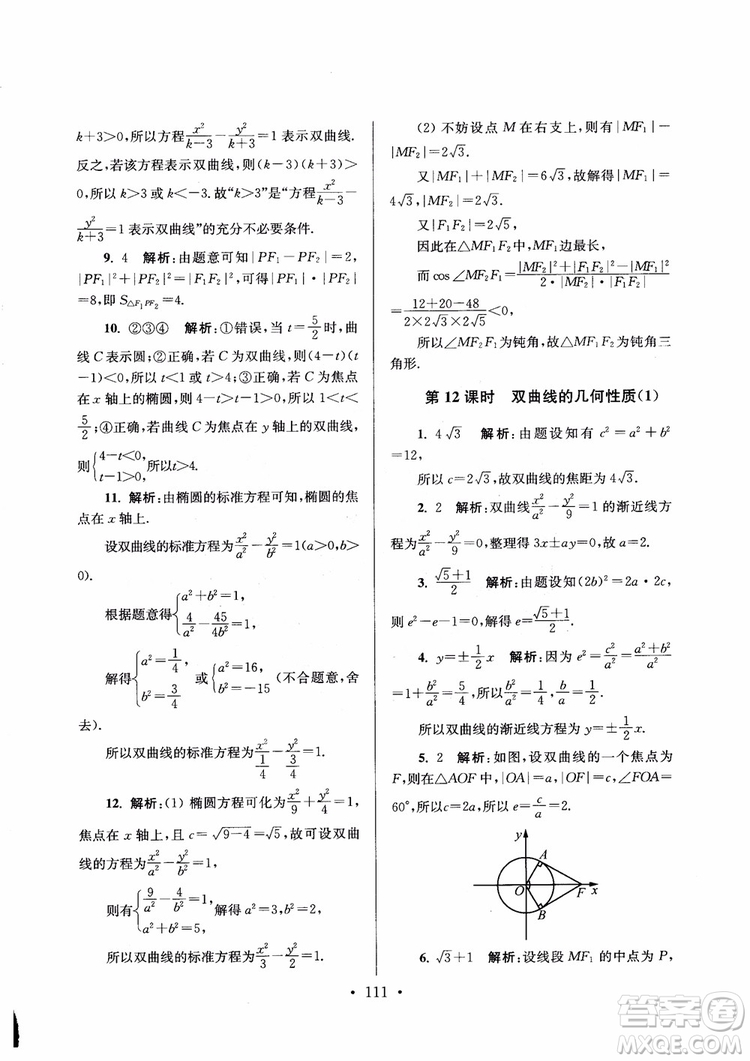 k+3>0,所以方程x²/(k-3)-y²/(k+3)=1 表示双曲线.
反之,若该方程表示双曲线,则(k-3)(k+3)>
0,解得 k>3 或 k<-3.故“k>3”是“方程x²/(k-3)-
y²/(k+3)=1 表示双曲线”的充分不必要条件.
9. 4 解析:由题意可知|PF₁-PF₂|=2,
|PF₁|²+|PF₂|²=|F₁F₂|²,可得|PF₁|·|PF₂|
=8,即 S△F₁PF₂=4.
10. ②③④ 解析:①错误,当 t=5/2时,曲
线 C 表示圆;②正确,若 C 为双曲线,则(4-t)(t
-1)<0,所以 t<1 或 t>4;③正确,若 C 为焦点
在 x 轴上的椭圆,则 4-t>t-1>0,所以 1<t<
5/2;④正确,若曲线 C 为焦点在 y 轴上的双曲线,
则{4-t<0, t-1>0,所以 t>4.
11. 解析:由椭圆的标准方程可知,椭圆的焦
点在 x 轴上.
设双曲线的标准方程为x²/a²-y²/b²=1(a>0,b>
0).
根据题意得{a²+b²=1, 4/a²-45/4b²=1,
解得{a²=1/4 b²=3/4 或{a²=16, b²=-15 (不合题意,舍
去).
所以双曲线的标准方程为x²/(1/4)-y²/(3/4)=1.
12. 解析:(1) 椭圆方程可化为x²/9+y²/4=1,
焦点在 x 轴上,且 c=√(9-4)=√5,故可设双曲
线的方程为x²/a²-y²/b²=1,
则有{9/a²-4/b²=1, a²+b²=5,解得 a²=3,b²=2,
所以双曲线的标准方程为x²/3-y²/2=1.
(2) 不妨设点 M 在右支上,则有|MF₁|-
|MF₂|=2√3.
又|MF₁|+|MF₂|=6√3,故解得|MF₁|=
4√3,|MF₂|=2√3.
又|F₁F₂|=2√5,
因此在△MF₁F₂中,MF₁边最长,
而cos∠MF₂F₁=(|MF₂|²+|F₁F₂|²-|MF₁|²)/(2·|MF₂|·|F₁F₂|)
=(12+20-48)/(2×2√3×2√5)<0,
所以∠MF₂F₁为钝角,故△MF₁F₂为钝角三
角形.
第 12 课时 双曲线的几何性质(1)
1. 4√3 解析:由题设知有 c²=a²+b²
=12,
所以 c=2√3,故双曲线的焦距为 4√3.
2. 2 解析:双曲线x²/a²-y²/9=1 的渐近线方
程为x²/a²-y²/9=0,整理得 3x±ay=0.
3. (√5+1)/2 解析:由题设知(2b)²=2a·2c,
则 e²-e-1=0,解得 e=(√5+1)/2.
4. y=±1/2x 解析:因为 e²=c²/a²=(a²+b²)/a²=
1+b²/a²=5/4,所以b²/a²=1/4,b/a=1/2,
所以双曲线的渐近线方程为 y=±1/2x.
5. 2 解析:如图,设双曲线的一个焦点为
F,则在△AOF 中,|OA|=a,|OF|=c,∠FOA=
60°,所以c=2a,所以 e=c/a=2.
y
A
O
F
x
B
6. √3+1 解析:设线段 MF₁的中点为 P,
· 111 ·
答案圈
MXQE.COM